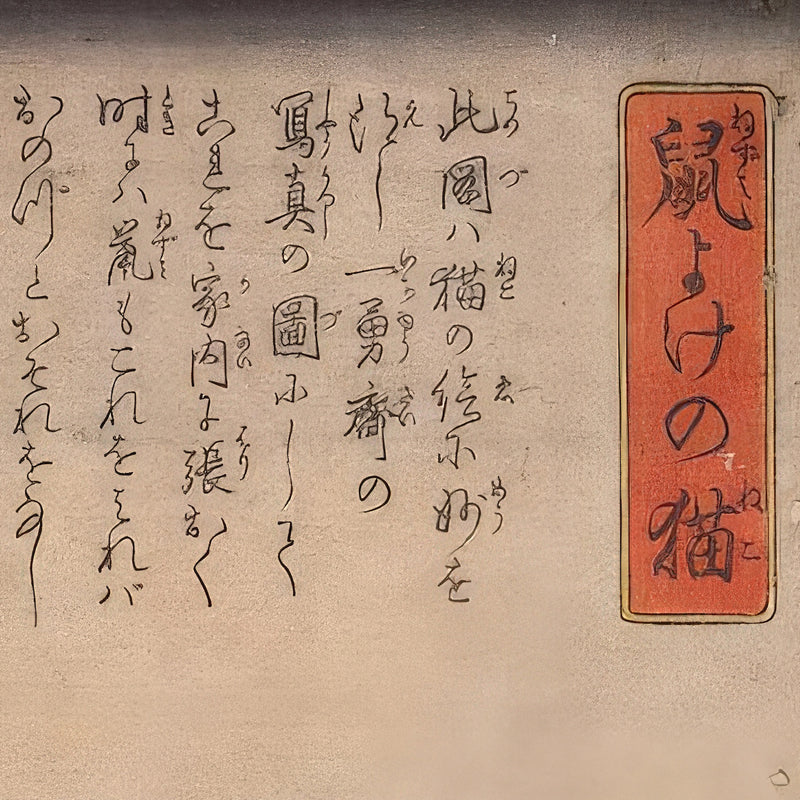 鼠よけの猫
此図ハ猫の絵に妙を
得し一勇齋の
写真の圖にして
これを家内に張おく
時にハ鼠もこれをみれバ
おのづとおそれをなし